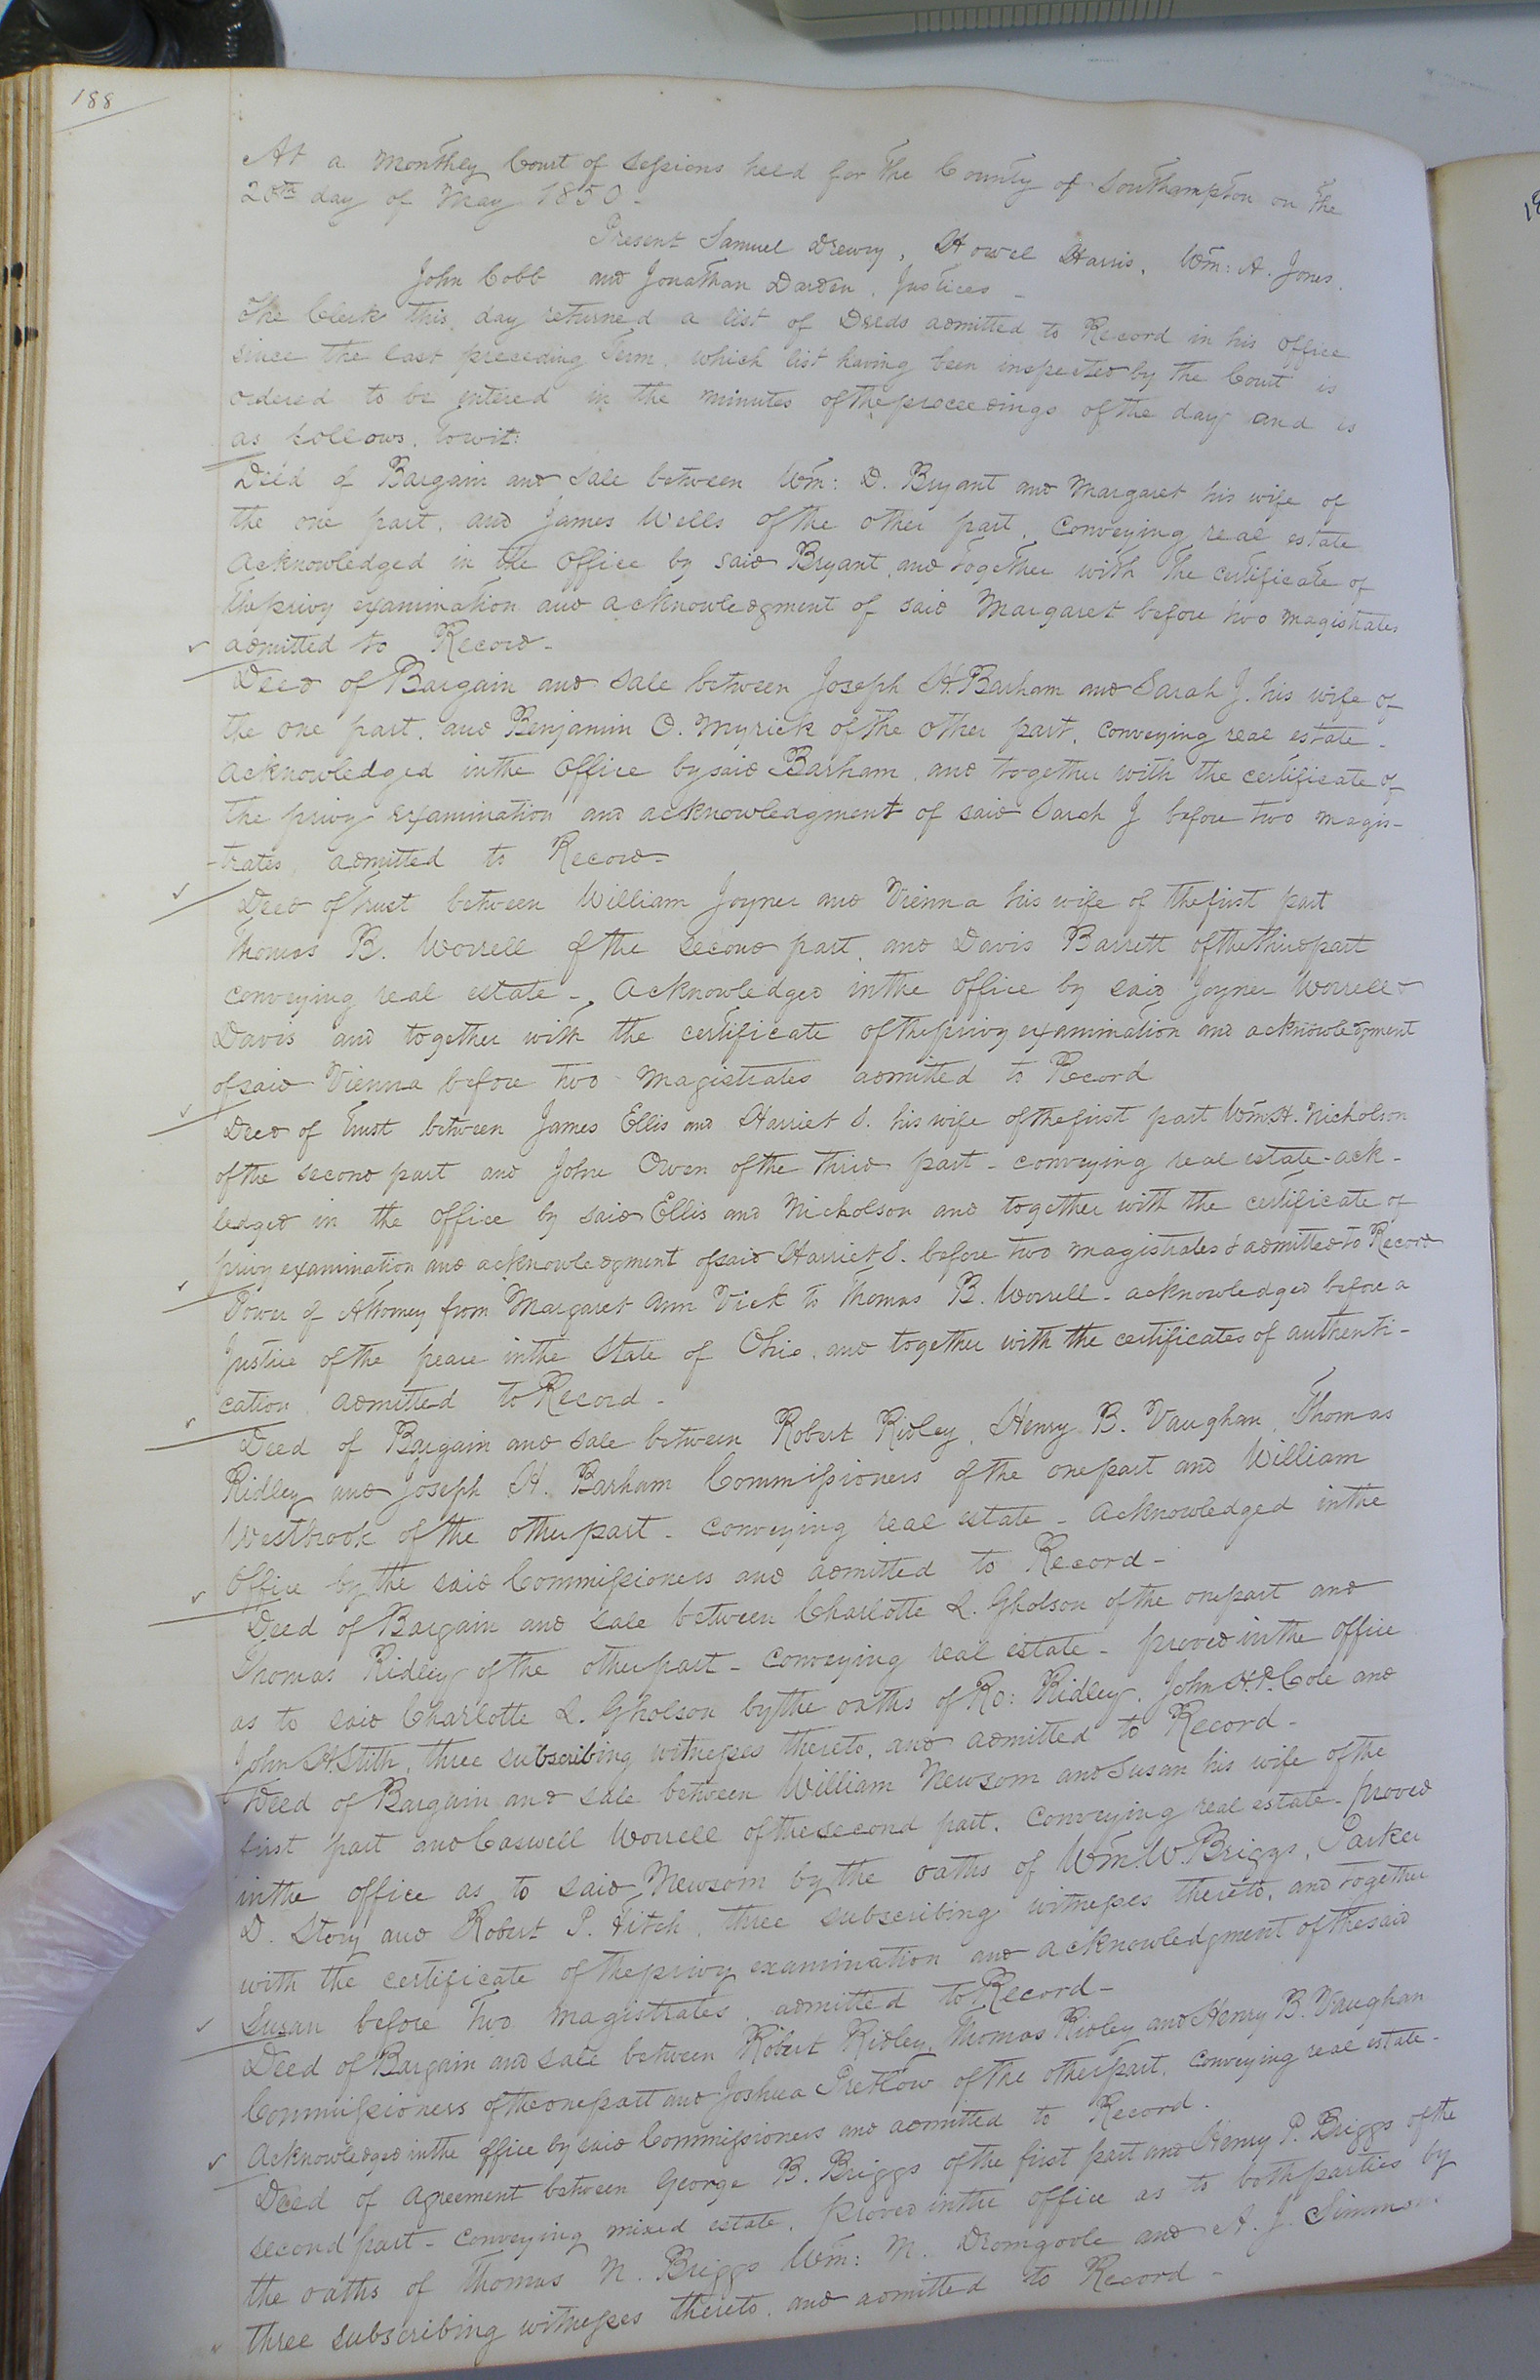 188
At a Monthly Court of Sessions held for the County of Southampton on the
20th day of May 1850 -
Present Samuel Drewry, Howel Harris, Wm: A. Jones,
John Cobb and Jonathan Darden, Justices -
The Clerk this day returned a list of Deeds admitted to Record in his office
since the last preceding Term, which list having been inspected by the Court is
ordered to be entered in the minutes of the proceedings of the day and is
as follows, Towit:
Deed of Bargain and Sale between Wm: D. Bryant and Margaret his wife of
the one part, and James Wells of the other part, conveying real estate
Acknowledged in the office by said Bryant, and together with the certificate of
the privy examination and acknowledgment of said Margaret before two magistrates
admitted to Record -
Deed of Bargain and Sale between Joseph H. Barham and Sarah J. his wife of
the one part, and Benjamin O. Myrick of the other part, conveying real estate -
Acknowledged in the office by said Barham, and together with the certificate of
the privy examination and acknowledgment of said Sarah J before two magis-
-trates, admitted to Record -
Deed of Trust between William Joyner and Vienna his wife of the first part
Thomas B. Worrell of the second part, and Davis Barrett of the third part
conveying real estate - Acknowledged in the office by said Joyner Worrell &
Davis and together with the certificate of the privy examination and acknowledgment
of said Vienna before two magistrates admitted to Record
Deed of Trust between James Ellis and Harriet S. his wife of the first part Wm H. Nicholson
of the second part and John Owen of the third part - conveying real estate - ack -
ledged in the office by said Ellis and Nicholson and together with the certificate of
privy examination and acknowledgment of said Harriet S. before two magistrates & admitted to Record
Power of Attorney from Margaret Ann Vick to Thomas B. Worrell - acknowledged before a
Justice of the peace in the State of Ohio, and together with the certificates of authenti-
cation admitted to Record -
Deed of Bargain and Sale between Robert Ridley, Henry B. Vaughan, Thomas
Ridley and Joseph H. Barham Commissioners of the one part and William
Westbrook of the other part - conveying real estate - Acknowledged in the
Office by the said Commissioners and admitted to Record -
Deed of Bargain and Sale between Charlotte L. Gholson of the one part and
Thomas Ridley of the other part - conveying real estate - proved in the office
as to said Charlotte L. Gholson by the oaths of Ro: Ridley, John H. P. Cole and
John H. Stith, three subscribing witnesses thereto, and admitted to Record -
Deed of Bargain and sale between William Newsom and Susan his wife of the
first part and Caswell Worrell of the second part, conveying real estate - proved
in the office as to said Newsom by the oaths of Wm. W. Briggs, Parker
D. Story and Robert P. Fitch, three subscribing witnesses thereto, and together
with the certificate of the privy examination and acknowledgment of the said
Susan before two magistrates, admitted to Record -
Deed of Bargain and sale between Robert Ridley, Thomas Ridley and Henry B. Vaughan
Commissioners of the one part and Joshua Pretlow of the other part, conveying real estate -
Acknowledged in the office by said Commissioners and admitted to Record.
Deed of Agreement between George B. Briggs of the first part and Henry P. Briggs of the
second part - conveying mixed estate, proved in the office as to both parties by
the oaths of Thomas N. Briggs Wm: N. Dromgoole and A. J. Simmons
three subscribing witnesses thereto, and admitted to Record -